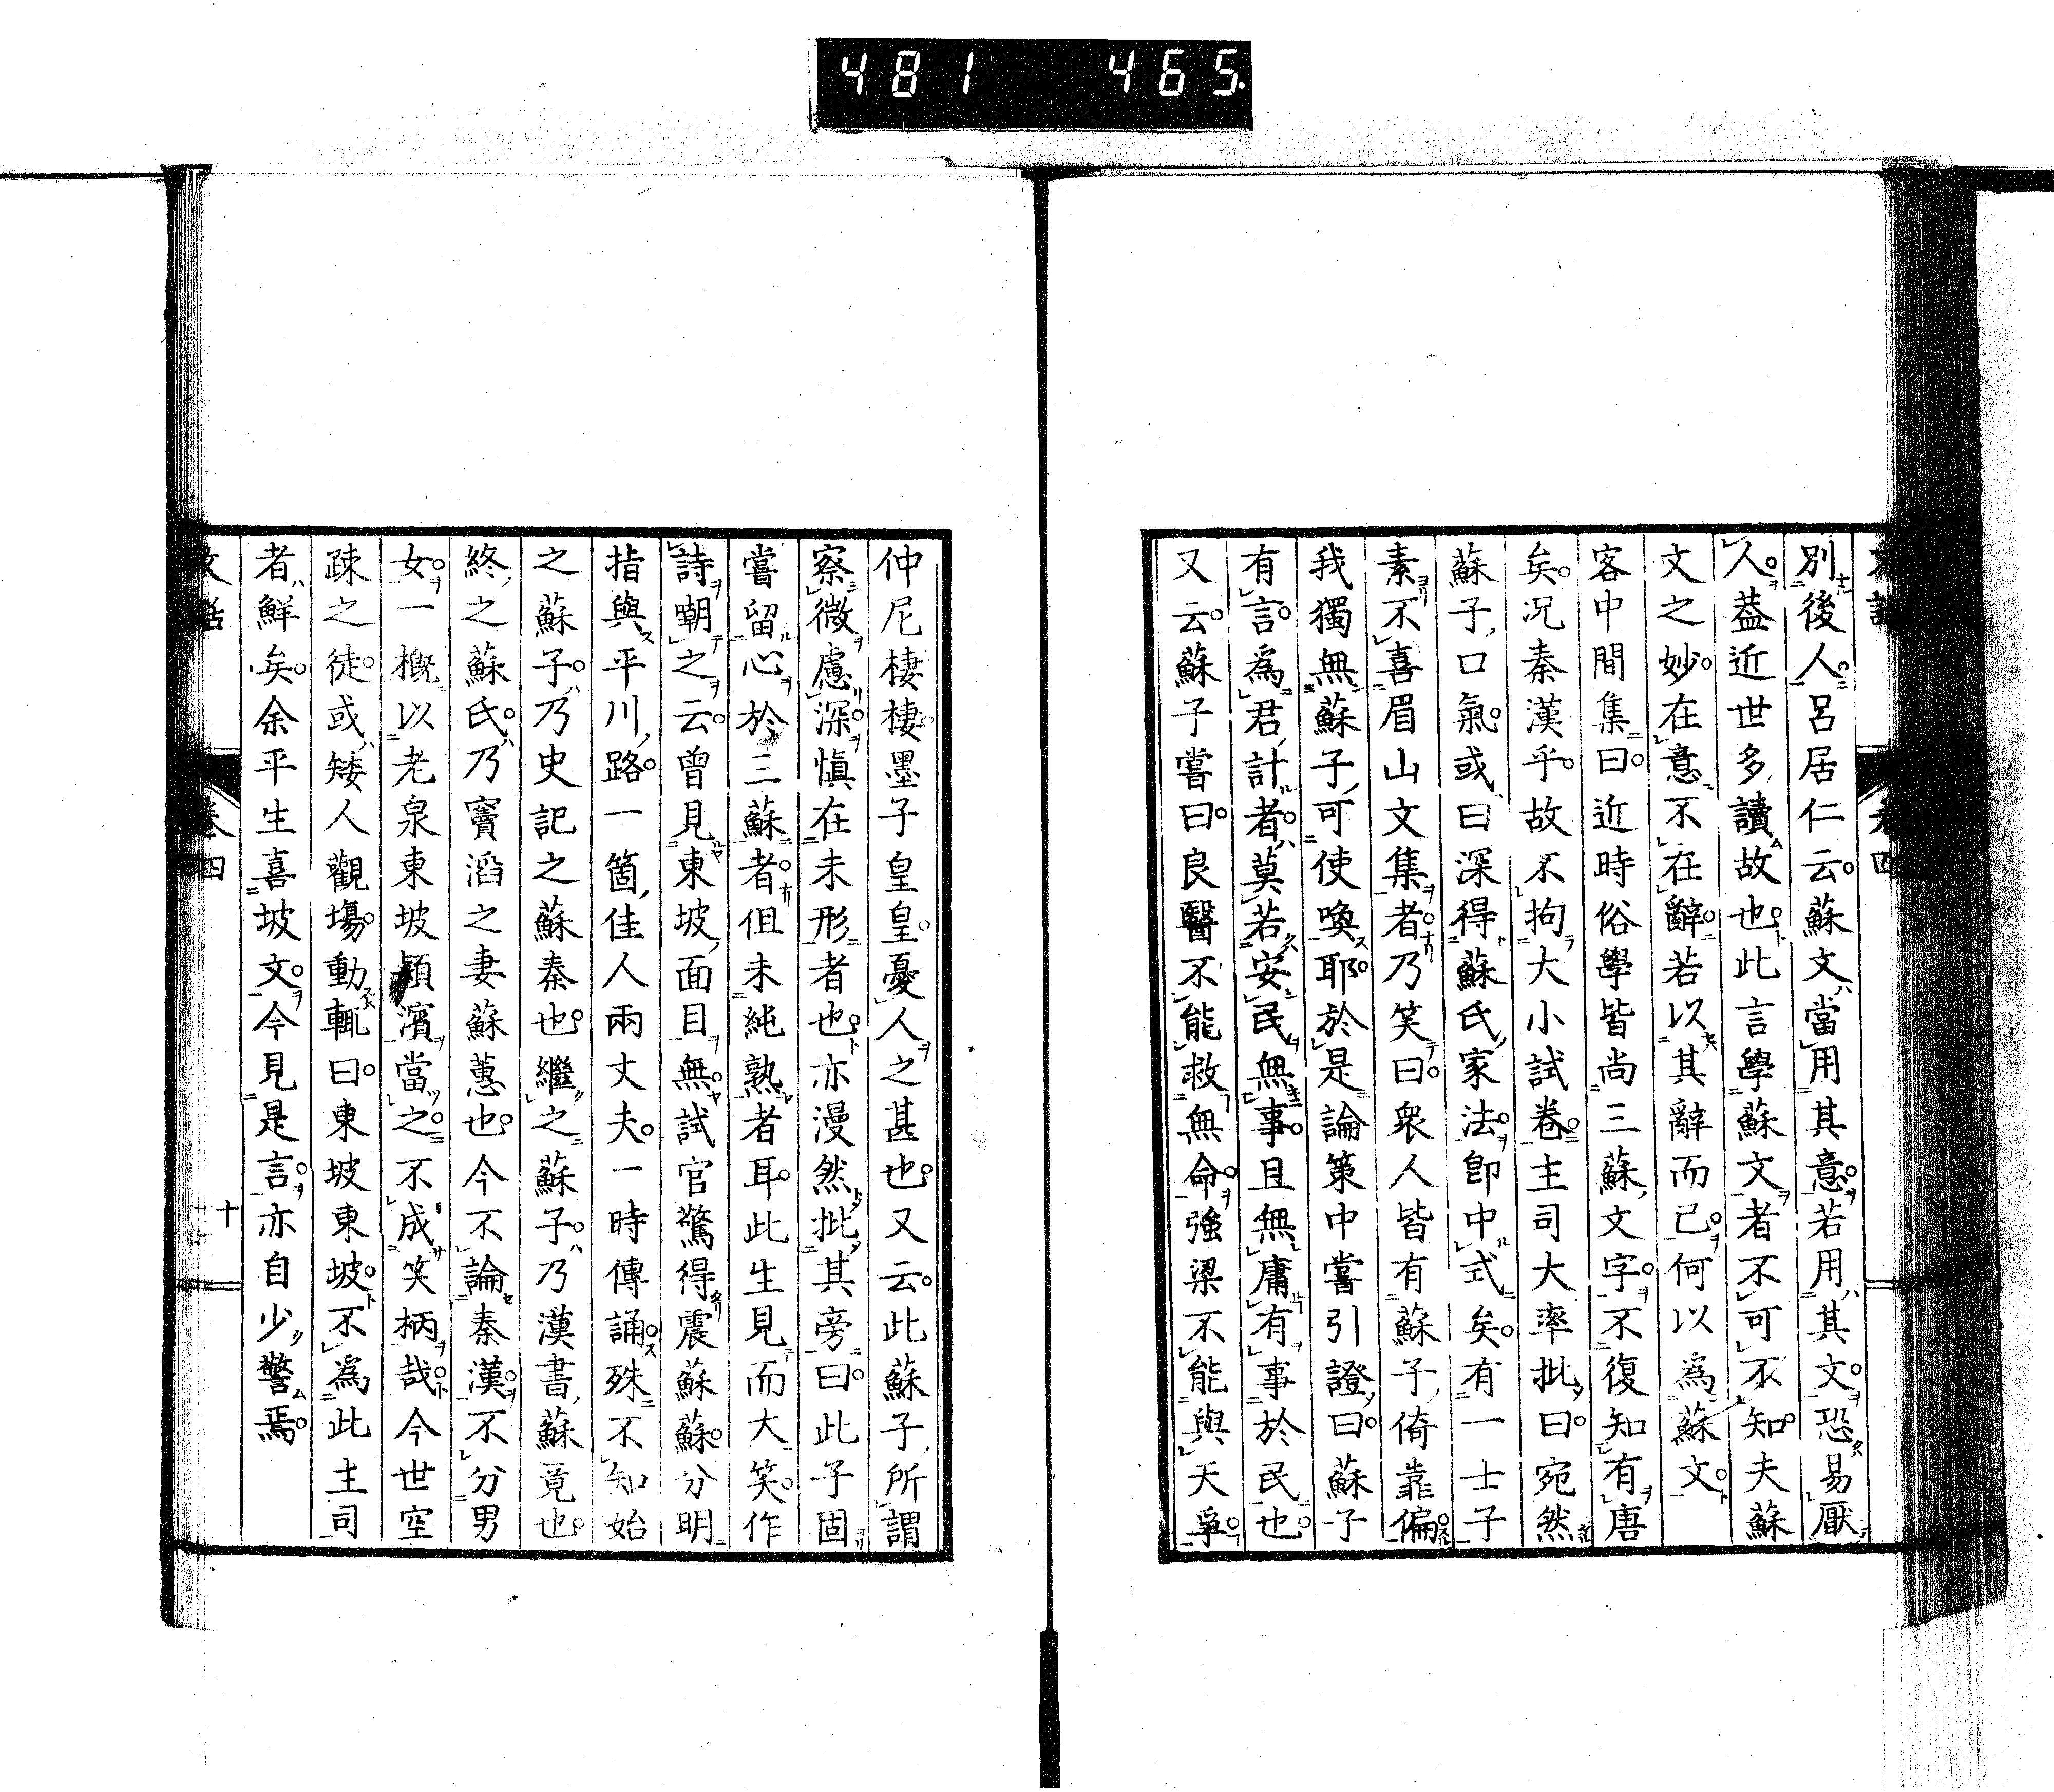 481 465
文話 卷四
別後人呂居仁云蘇文當用其意若用其文恐易厭
人葢近世多讀故也此言學蘇文者不可不知夫蘇
文之妙在意不在辭若以其辭而已何以爲蘇文
客中間集曰近時俗學皆尚三蘇文字不復知有唐
矣况秦漢乎故不拘大小試卷主司大率批曰宛然
蘇子口氣或曰深得蘇氏家法卽中式矣有一士子
素不喜眉山文集者乃笑曰衆人皆有蘇子倚靠偏
我獨無蘇子可使喚耶於是論策中嘗引證曰蘇子
有言爲君計者莫若安民無事且無庸有事於民也
又云蘇子嘗曰良醫不能救無命強梁不能與天爭
仲尼棲棲墨子皇皇憂人之甚也又云此蘇子所謂
察微慮深愼在未形者也亦漫然批其旁曰此子固
嘗留心於三蘇者但未純熟者耳此生見而大笑作
詩嘲之云曾見東坡面目無試官驚得震蘇蘇分明
指與平川路一箇佳人兩丈夫一時傳誦殊不知始
之蘇子乃史記之蘇秦也繼之蘇子乃漢書蘇竟也
終之蘇氏乃竇滔之妻蘇蕙也今不論秦漢不分男
女一概以老泉東坡潁濱當之不成笑柄哉今世空
疎之徒或矮人觀場動輒曰東坡東坡不爲此主司
者鮮矣余平生喜坡文今見是言亦自少警焉
文話 卷四 十